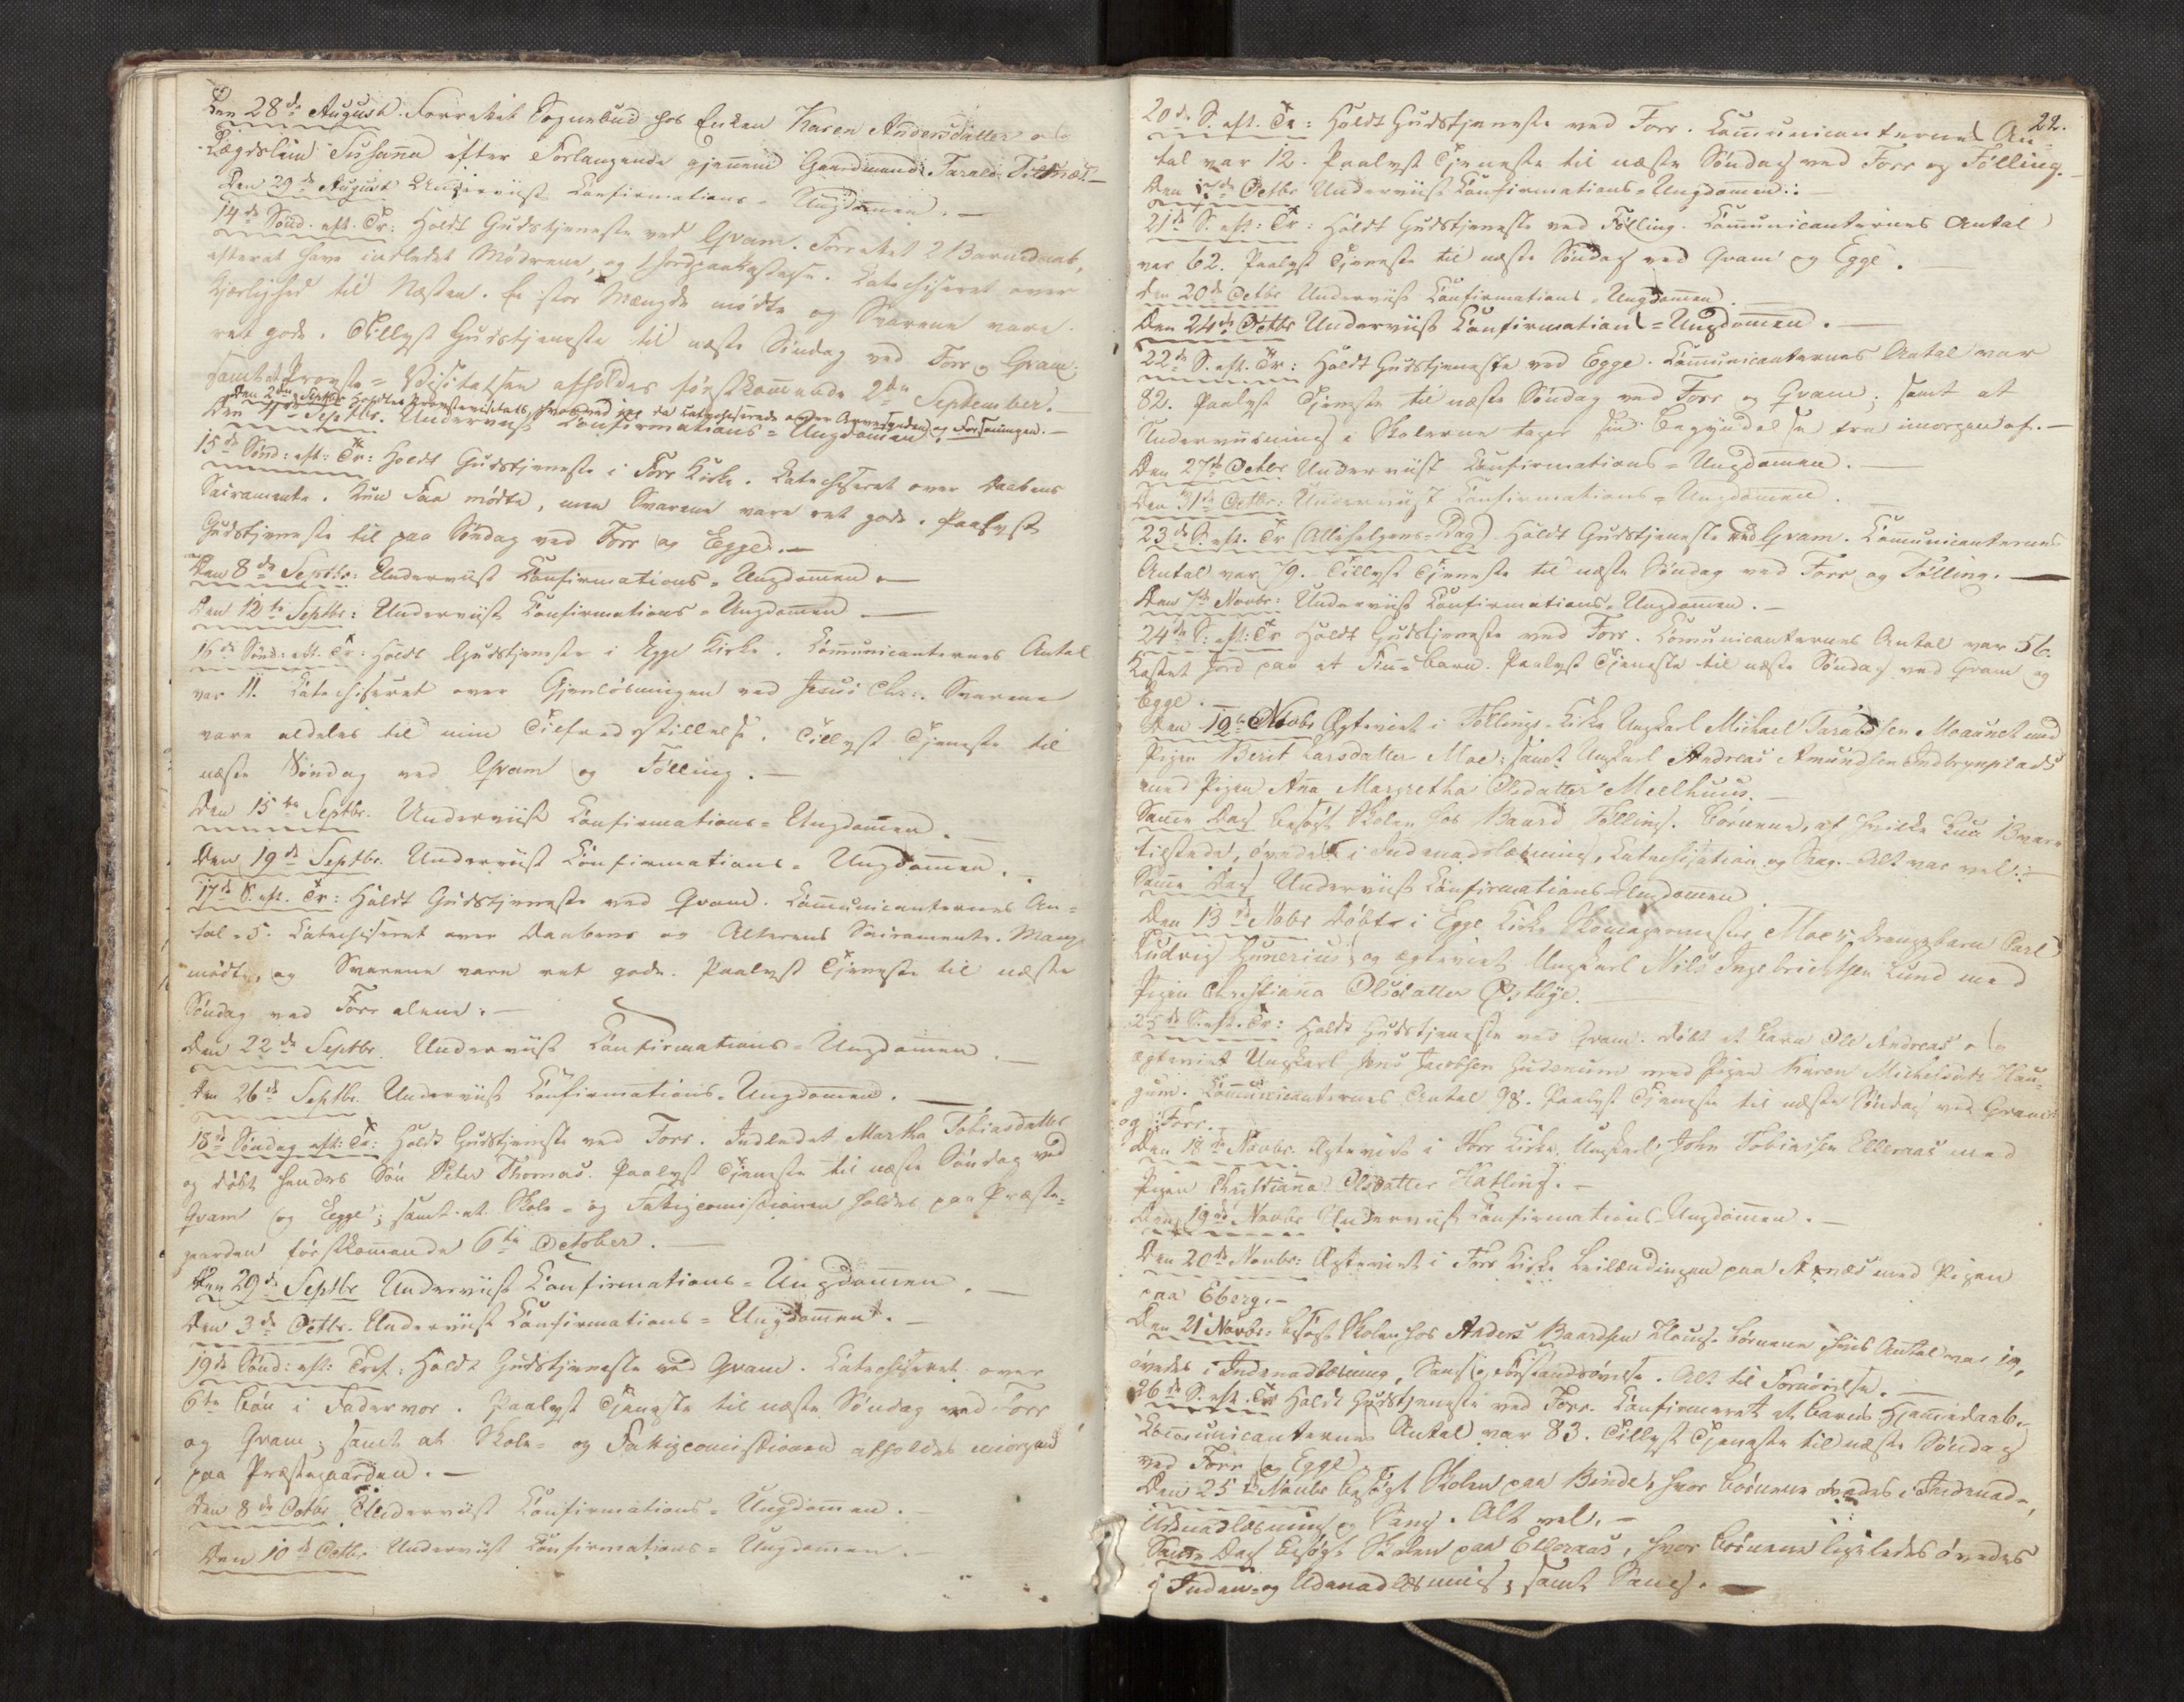 Den 28de August. Forrettet Sognebud hos Enken Karen Andersdatter og
Lægdslem Susanna efter Forlangende gjennem Gaardmand Farald
Den 29de August Underviist Confirmations-Ungdommen.
14de Sønd. eft. Tr: Holdt Gudstjeneste ved Qvam. Forrettet 2 Barnedaab,
efterat have indledet Mødrene, og 1 Jordpaakastelse. Catechiseret over
Kjærlighed til Næsten. En stor Mængde mødte og Svarene vare
ret gode. Tillyst Gudstjeneste til næste Søndag ved Forr og Qvam;
samt at Provste-Visitatsen afholdes førstkommende 2den September.
Den 2den Septbr holdtes Provstevisitats, hvorved jeg da catechiserede over Arvesynden og Forsoningen.
Den 4de Septbr. Underviist Confirmations-Ungdommen.
15de Sønd: eft: Tr: Holdt Gudstjeneste i Forr Kirke. Catechiseret over Daabens
Sacramente. Kun Faa mødte, men Svarene vare ret gode. Paalyst
Gudstjeneste til paa Søndag ved Forr og Egge.
Den 8de Septbr: Underviist Confirmations-Ungdommen.
Den 12te Septbr: Underviist Confirmations-Ungdommen
16de Sønd: eft. Tr: Holdt Gudstjeneste i Egge Kirke. Communicanternes Antal
var 11. Catechiseret over Gjenløsningen ved Jesus Chr:. Svarene
vare aldeles til min Tilfredsstillelse. Tillyst Tjeneste til
næste Søndag ved Qvam og Følling.
Den 15de Septbr. Underviist Confirmations-Ungdommen.
Den 19de Septbr. Underviist Confirmations-Ungdommen.
17de S. eft. Tr: Holdt Gudstjeneste ved Qvam. Communicanternes An-
tal 5. Catechiseret over Daabens og Alterens Sacramente. Mange
mødte, og Svarene vare ret gode. Paalyst Tjeneste til næste
Søndag ved Forr alene.
Den 22de Septbr. Underviist Confirmations-Ungdommen.
Den 26de Septbr. Underviist Confirmations-Ungdommen.
18de Søndag eft: Tr: Holdt Gudstjeneste ved Forr. Indledet Martha Tobiasdatter
og døbt hendes Søn Peter Thomas. Paalyst Tjeneste til næste Søndag ved
Qvam og Egge; samt at Skole- og Fattigcommissionen holdes paa Præste-
gaarden førstkommende 6te October.
Den 29de Septbr Underviist Confirmations-Ungdommen.
Den 3de Octbr. Underviist Confirmations-Ungdommen.
19de Sønd: eft: Tref: Holdt Gudstjeneste ved Qvam. Catechiseret over
6te Bøn i Fadervor. Paalyst Tjeneste til næste Søndag ved Forr
og Qvam; samt at Skole- og Fattigcomissionen afholdes imorgen
paa Præstegaarden.
Den 8de Octbr. Underviist Confirmations-Ungdommen.
Den 10de Octbr. Underviist Confirmations-Ungdommen.
22.
20de S. eft. Tr: Holdt Gudstjeneste ved Forr. Communicanternes An-
tal var 12. Paalyst Tjeneste til næste Søndag ved Forr og Følling.
Den Octbr Underviist Confirmations-Ungdommen.
21de S. eft: Tr: Holdt Gudstjeneste ved Følling. Communicanternes Antal
var 62. Paalyst Tjeneste til næste Søndag ved Qvam og Egge.
Den 20de Octbr Underviist Confirmations-Ungdommen.
Den 24de Octbr Underviist Confirmations-Ungdommen.
22de S. eft. Tr: Holdt Gudstjeneste ved Egge. Communicanternes Antal var
82. Paalyst Tjeneste til næste Søndag ved Forr og Qvam; samt at
Underviisning i Skolerne tager sin Begyndelse fra imorgen af.
Den 27de Octbr Underviist Confirmations-Ungdommen.
Den 31de Octbr: Underviist Confirmations-Ungdommen.
23de S. eft. Tr (Allehelgens-Dag) Holdt Gudstjeneste ved Qvam. Communicanternes
Antal var 79. Tillyst Tjeneste til næste Søndag ved Forr og Følling.
Den 7de Novbr: Underviist Confirmations-Ungdommen.
24de S: eft: Tr Holdt Gudstjeneste ved Forr. Communicanternes Antal var 56.
Kastet Jord paa et Fin-Barn. Paalyst Tjeneste til næste Søndag ved Qvam og
Egge.
Den Novbr Ægteviet i Føllings-Kirke Ungkarl Michael Faraldsen Moaunet med
Pigen Berit Larsdatter Moe; samt Ungkarl Andreas Amundsen Indbrynplads
med Pigen Ana Margretha Olsdatter Meelhuus.
Samme Dag besøgt Skolen hos Baard Følling. Børnene, af hvilke kun vare
tilstede, øvedes i Indenadslæsning, Catechisation og Sang. Alt var vel.
Samme Dag Underviist Confirmations-Ungdommen.
Den 13de Novbr Døbt i Egge Kirke Skomagermester Moe's Drengebarn Carl
Ludvig Hunerius; og ægteviet Ungkarl Nils Ingebrichtsen Lund med
Pigen Christianna Olsdatter Østbye.
25de S. eft. Tr: Holdt Gudstjeneste ved Qvam. Døbt et Barn Ole Andreas og
ægteviet Ungkarl Jens Jacobsen Gudenum med Pigen Karen Michelsdtr Hau-
gum. Communicanternes Antal 98. Paalyst Tjeneste til næste Søndag ved Qvam
og Forr.
Den 18de Novbr. Ægteviet i Forr Kirke Ungkarl John Tobiassen Elleraas med
Pigen Christianna Olsdatter Hatling.
Den 19de Novbr Underviist Confirmations-Ungdommen.
Den 20de Novbr: Ægteviet i Forr Kirke Leilændingen paa med Pigen
paa Eberg.
Den 21 Novbr: besøgt Skolen hos Anders Baardsen Houg. Børnene hvis Antal var 19,
øvedes i Indenadlæsning, Sang og Forstandsøvelse. Alt til Fornøielse.
26de S. eft. Tr Holdt Gudstjeneste ved Forr. Confirmeret et Barns Hjemmedaab.
Communicanternes Antal var 83. Tillyst Tjeneste til næste Søndag
ved Forr og Egge.
Den 25de Novbr besøgt Skolen paa Binde, hvor Børnene øvedes i Indenad-,
Udenadlæsning og Sang. Alt vel.
Samme Dag besøgt Skolen paa Elleraas, hvor Børnene ligeledes øvedes
i Inden- og Udenadlæsning; samt Sang.